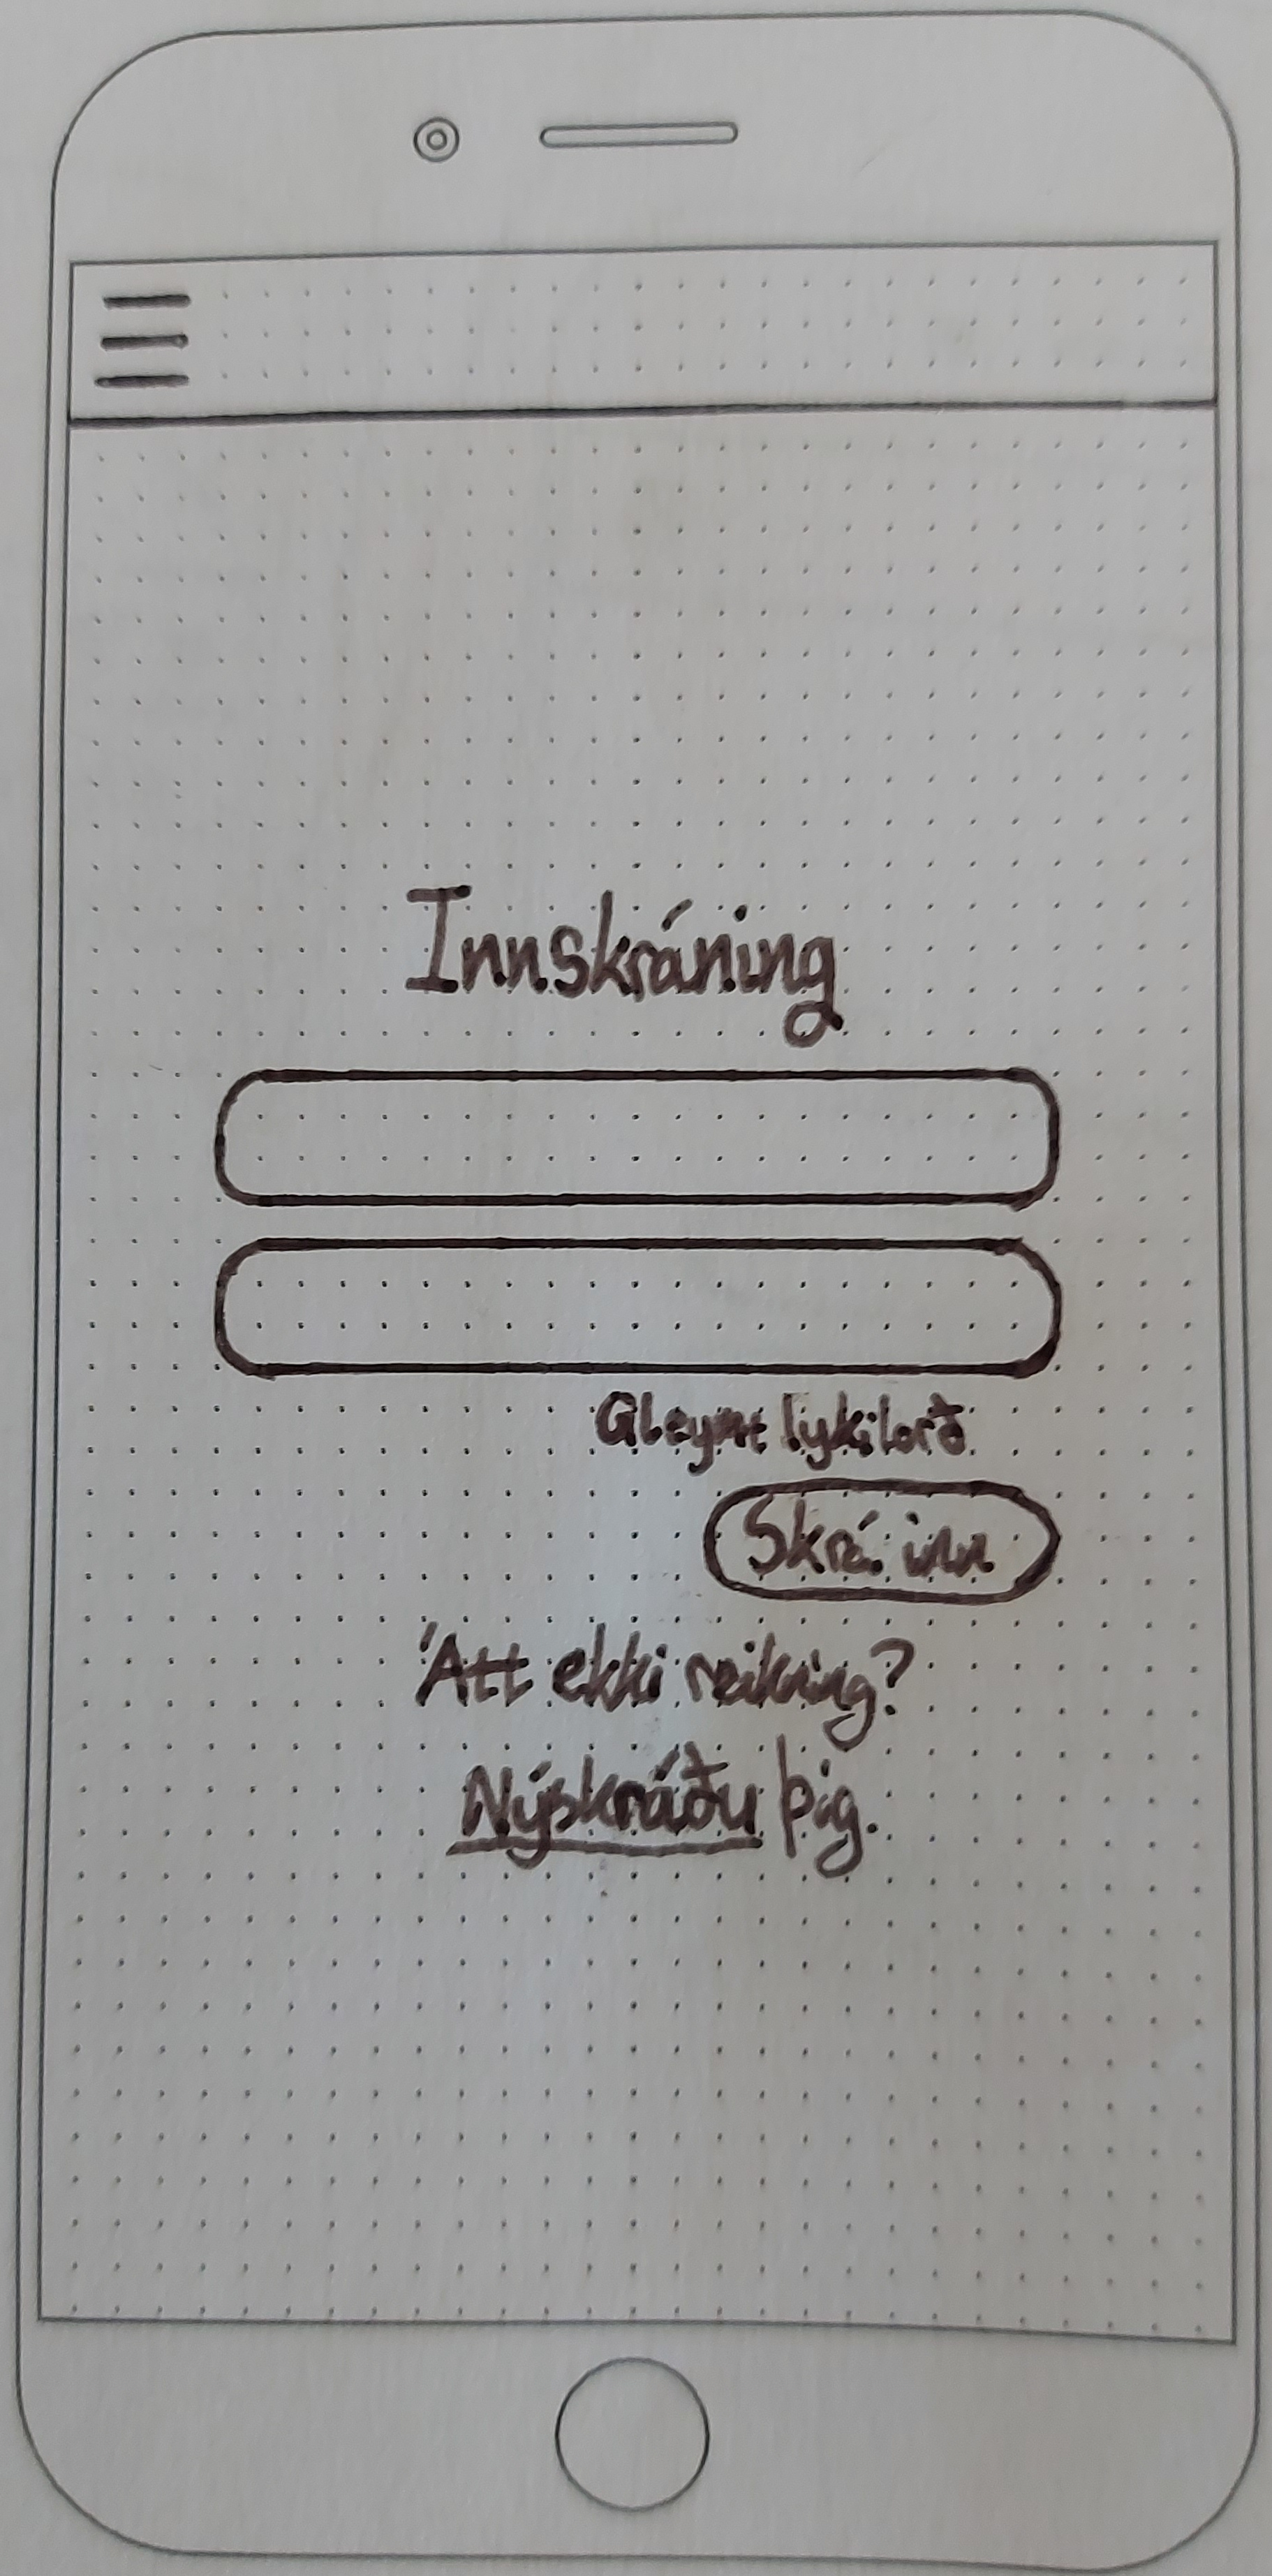 Innskráning
Gleymt lykilorð
Skrá inn
Átt ekki reikning?
Nýskráðu þig.